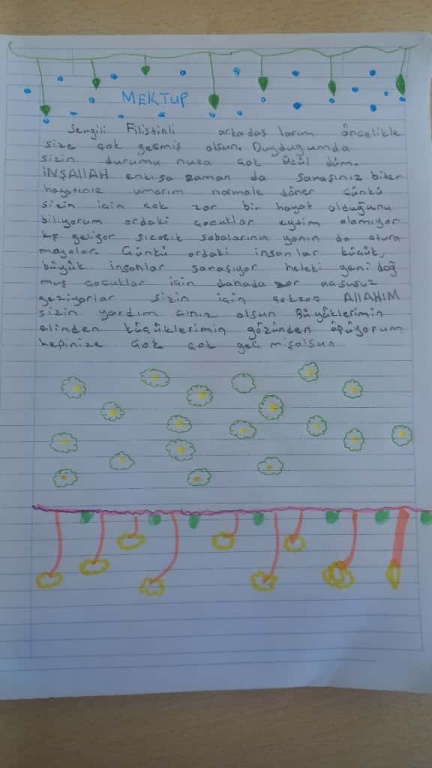 MEKTUP
Sevgili Filistinli arkadaşlarım öncelikle
size çok geçmiş olsun. Duyduğumda
sizin durumu nuza çok üzül düm.
İNŞALLAH enkısa zaman da savaşınız biter
hayatınız umarım normale döner Çünkü
sizin için çok zor bir hayat olduğunu
biliyorum ordaki çocuklar eytim alamıyor
kış geliyor sıcacık sobalarının yanın da otura
mayolar. Çünkü ordaki insanlar küçük,
büyük insanlar savaşıyor heleki yeni doğ
muş çocuklar için dahada zor
geziyorlar sizin için ALLAHIM
sizin yardım cınız olsun Büyüklerimin
elinden küçüklerimin gözünden öpüyorum
hepinize çok çok geç mişolsun